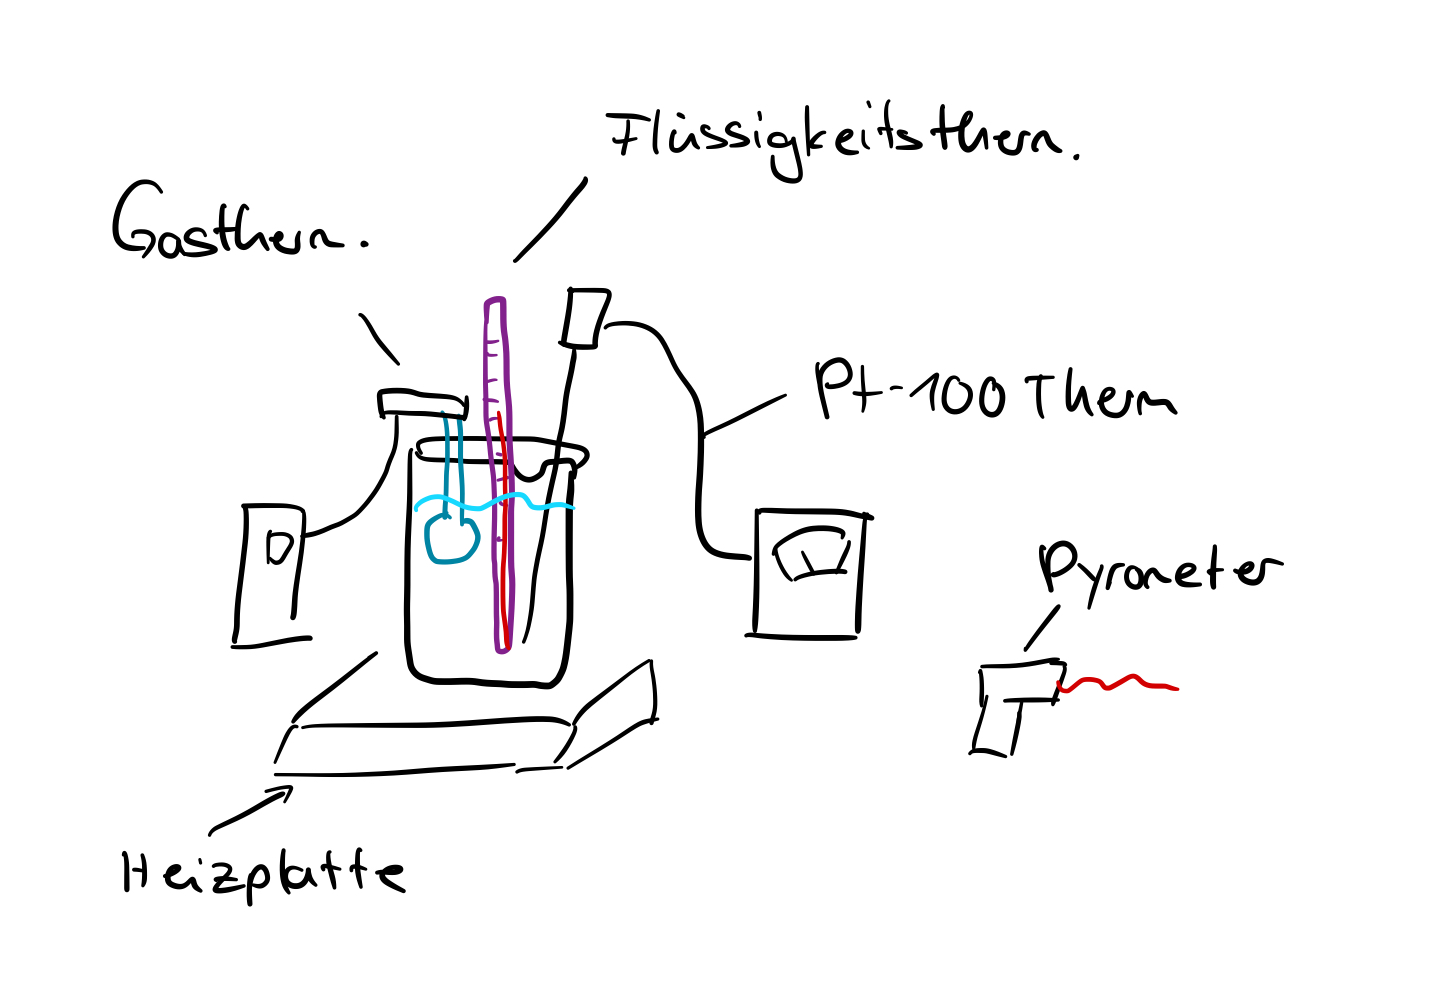 Flüssigkeitstherm.
Gastherm.
Pt-100 Therm
Pyrometer
Heizplatte